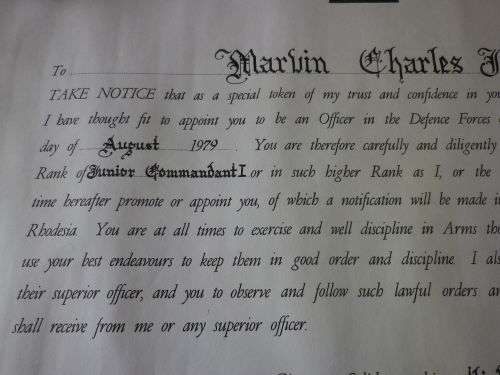 To Marvin Charles
TAKE NOTICE that as a special token of my trust and confidence in
I have thought fit to appoint you to be an Officer in the Defence Forces
day of August 1979. You are therefore carefully and diligently
Rank of Junior Commandant I or in such higher Rank as I, or the
time hereafter promote or appoint you, of which a notification will be made
Rhodesia. You are at all times to exercise and well discipline in Arms
use your best endeavours to keep them in good order and discipline. I
their superior officer, and you to observe and follow such lawful orders
shall receive from me or any superior officer.